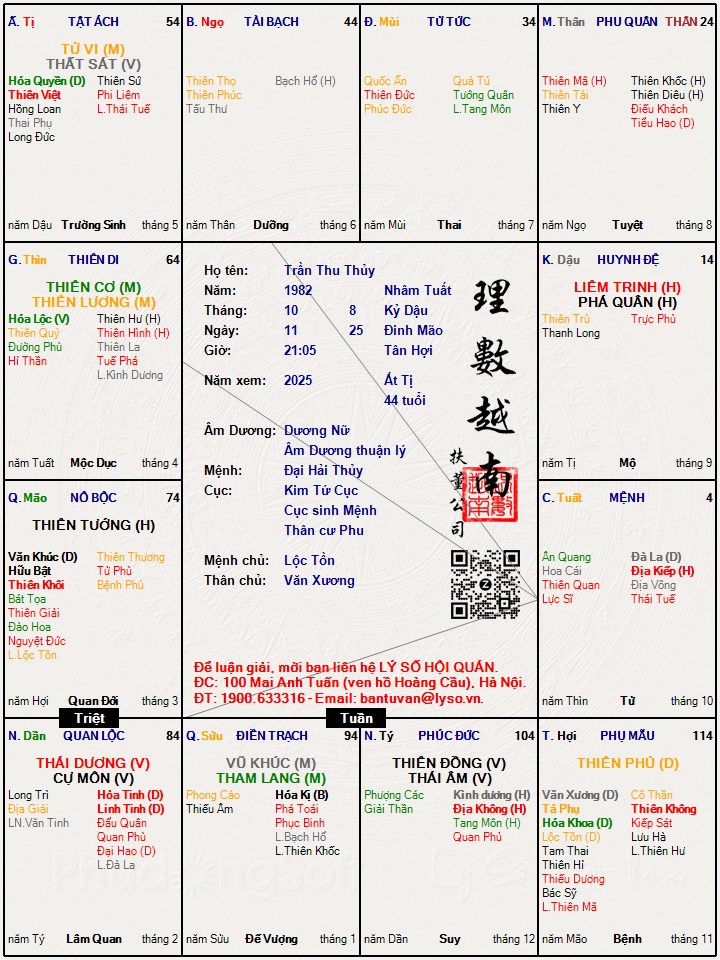 Ấ. Tị TẬT ÁCH 54
TỬ VI (M)
THẤT SÁT (V)
Hóa Quyền (D) Thiên Sứ
Thiên Việt Phi Liêm
Hồng Loan L.Thái Tuế
Thai Phụ
Long Đức
năm Dậu Trường Sinh tháng 5
B. Ngọ TÀI BẠCH 44
Thiên Thọ Bạch Hổ (H)
Thiên Phúc
Tấu Thư
năm Thân Dưỡng tháng 6
Đ. Mùi TỬ TỨC 34
Quốc Ấn Quả Tú
Thiên Đức Tướng Quân
Phúc Đức L.Tang Môn
năm Mùi Thai tháng 7
M. Thân PHU QUÂN THÂN 24
Thiên Mã (H) Thiên Khốc (H)
Thiên Tài Thiên Diêu (H)
Thiên Y Điếu Khách
Tiểu Hao (D)
năm Ngọ Tuyệt tháng 8
G. Thìn THIÊN DI 64
THIÊN CƠ (M)
THIÊN LƯƠNG (M)
Hóa Lộc (V) Thiên Hư (H)
Thiên Quý Thiên Hình (H)
Đường Phù Thiên La
Hỉ Thần Tuế Phá
L.Kình Dương
năm Tuất Mộc Dục tháng 4
Họ tên: Trần Thu Thủy
Năm: 1982 Nhâm Tuất
Tháng: 10 8 Kỷ Dậu
Ngày: 11 25 Đinh Mão
Giờ: 21:05 Tân Hợi
Năm xem: 2025 Ất Tị
44 tuổi
Âm Dương: Dương Nữ
Âm Dương thuận lý
Mệnh: Đại Hải Thủy
Cục: Kim Tứ Cục
Cục sinh Mệnh
Thân cư Phu
Mệnh chủ: Lộc Tồn
Thân chủ: Văn Xương
理數越南
扶董公司
Để luận giải, mời bạn liên hệ LÝ SỐ HỘI QUÁN.
ĐC: 100 Mai Anh Tuấn (ven hồ Hoàng Cầu), Hà Nội.
ĐT: 1900.633316 - Email: bantuvan@lyso.vn.
K. Dậu HUYNH ĐỆ 14
LIÊM TRINH (H)
PHÁ QUÂN (H)
Thiên Trù Trực Phù
Thanh Long
năm Tị Mộ tháng 9
Q. Mão NÔ BỘC 74
THIÊN TƯỚNG (H)
Văn Khúc (D) Thiên Thương
Hữu Bật Tử Phù
Thiên Khôi Bệnh Phù
Bát Tọa
Thiên Giải
Đào Hoa
Nguyệt Đức
L.Lộc Tồn
năm Hợi Quan Đới tháng 3
C. Tuất MỆNH 4
Ân Quang Đà La (D)
Hoa Cái Địa Kiếp (H)
Thiên Quan Địa Võng
Lực Sĩ Thái Tuế
năm Thìn Tử tháng 10
Triệt
Tuần
N. Dần QUAN LỘC 84
THÁI DƯƠNG (V)
CỰ MÔN (V)
Long Trì Hỏa Tinh (D)
Địa Giải Linh Tinh (D)
LN.Văn Tinh Đẩu Quân
Quan Phù
Đại Hao (D)
L.Đà La
năm Tý Lâm Quan tháng 2
Q. Sửu ĐIỀN TRẠCH 94
VŨ KHÚC (M)
THAM LANG (M)
Phong Cáo Hóa Kị (B)
Thiếu Âm Phá Toái
Phục Binh
L.Bạch Hổ
L.Thiên Khốc
năm Sửu Đế Vượng tháng 1
N. Tý PHÚC ĐỨC 104
THIÊN ĐỒNG (V)
THÁI ÂM (V)
Phượng Các Kình dương (H)
Giải Thần Địa Không (H)
Tang Môn (H)
Quan Phủ
năm Dần Suy tháng 12
T. Hợi PHỤ MẪU 114
THIÊN PHỦ (D)
Văn Xương (D) Cô Thần
Tả Phụ Thiên Không
Hóa Khoa (D) Kiếp Sát
Lộc Tồn (D) Lưu Hà
Tam Thai L.Thiên Hư
Thiên Hỉ
Thiếu Dương
Bác Sỹ
L.Thiên Mã
năm Mão Bệnh tháng 11